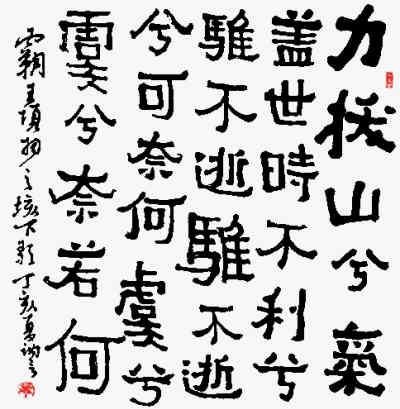 力拔山兮氣
盖世時不利兮
騅不逝騅不逝
兮可奈何虞兮
虞兮奈若何
霸王項羽之垓下歌 丁亥夏